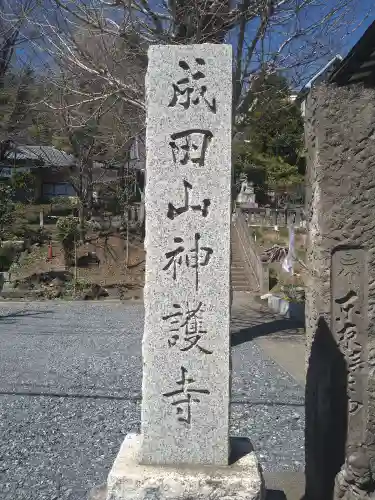 成田山神護寺